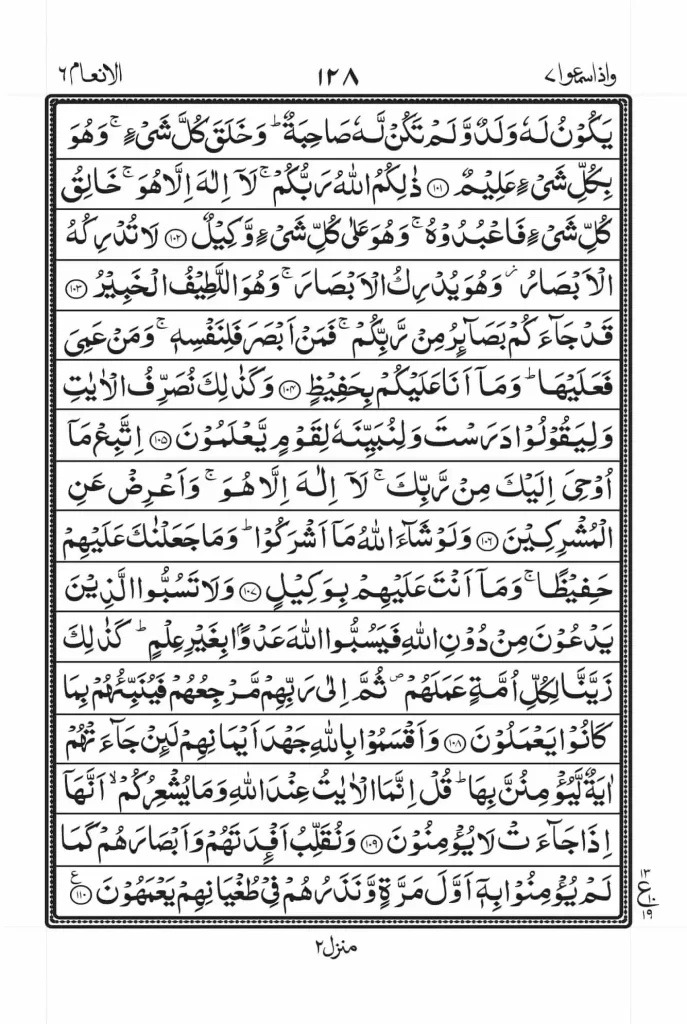 واذاسمعوا ٧ ١٢٨ الانعام ٦
يَكُوۡنُ لَهٗ وَلَدٌ وَّلَمۡ تَكُنۡ لَّهٗ صَاحِبَةٌ ؕ وَخَلَقَ كُلَّ شَىۡءٍ ۚ وَهُوَ
بِكُلِّ شَىۡءٍ عَلِيۡمٌ ﴿۱۰۱﴾ ذٰلِكُمُ اللّٰهُ رَبُّكُمۡ ۚ لَاۤ اِلٰهَ اِلَّا هُوَ ۚ خَالِقُ
كُلِّ شَىۡءٍ فَاعۡبُدُوۡهُ ۚ وَهُوَ عَلٰى كُلِّ شَىۡءٍ وَّكِيۡلٌ ﴿۱۰۲﴾ لَا تُدۡرِكُهُ
الۡاَبۡصَارُ ۫ وَهُوَ يُدۡرِكُ الۡاَبۡصَارَ ۚ وَهُوَ اللَّطِيۡفُ الۡخَبِيۡرُ ﴿۱۰۳﴾
قَدۡ جَآءَكُمۡ بَصَآٮِٕرُ مِنۡ رَّبِّكُمۡ ۚ فَمَنۡ اَبۡصَرَ فَلِنَفۡسِهٖ ۚ وَمَنۡ عَمِىَ
فَعَلَيۡهَا ؕ وَمَاۤ اَنَا عَلَيۡكُمۡ بِحَفِيۡظٍ ﴿۱۰۴﴾ وَكَذٰلِكَ نُصَرِّفُ الۡاٰيٰتِ
وَلِيَقُوۡلُوۡا دَرَسۡتَ وَلِنُبَيِّنَهٗ لِقَوۡمٍ يَّعۡلَمُوۡنَ ﴿۱۰۵﴾ اِتَّبِعۡ مَاۤ
اُوۡحِىَ اِلَيۡكَ مِنۡ رَّبِّكَ ۚ لَاۤ اِلٰهَ اِلَّا هُوَ ۚ وَاَعۡرِضۡ عَنِ
الۡمُشۡرِكِيۡنَ ﴿۱۰۶﴾ وَلَوۡ شَآءَ اللّٰهُ مَاۤ اَشۡرَكُوۡا ؕ وَمَا جَعَلۡنٰكَ عَلَيۡهِمۡ
حَفِيۡظًا ۚ وَمَاۤ اَنۡتَ عَلَيۡهِمۡ بِوَكِيۡلٍ ﴿۱۰۷﴾ وَلَا تَسُبُّوا الَّذِيۡنَ
يَدۡعُوۡنَ مِنۡ دُوۡنِ اللّٰهِ فَيَسُبُّوا اللّٰهَ عَدۡوًۢا بِغَيۡرِ عِلۡمٍ ؕ كَذٰلِكَ
زَيَّنَّا لِكُلِّ اُمَّةٍ عَمَلَهُمۡ ۪ ثُمَّ اِلٰى رَبِّهِمۡ مَّرۡجِعُهُمۡ فَيُنَبِّئُهُمۡ بِمَا
كَانُوۡا يَعۡمَلُوۡنَ ﴿۱۰۸﴾ وَاَقۡسَمُوۡا بِاللّٰهِ جَهۡدَ اَيۡمَانِهِمۡ لَٮِٕنۡ جَآءَتۡهُمۡ
اٰيَةٌ لَّيُؤۡمِنُنَّ بِهَا ؕ قُلۡ اِنَّمَا الۡاٰيٰتُ عِنۡدَ اللّٰهِ وَمَا يُشۡعِرُكُمۡ ۙ اَنَّهَاۤ
اِذَا جَآءَتۡ لَا يُؤۡمِنُوۡنَ ﴿۱۰۹﴾ وَنُقَلِّبُ اَفۡـِٕدَتَهُمۡ وَاَبۡصَارَهُمۡ كَمَا
لَمۡ يُؤۡمِنُوۡا بِهٖۤ اَوَّلَ مَرَّةٍ وَّنَذَرُهُمۡ فِىۡ طُغۡيَانِهِمۡ يَعۡمَهُوۡنَ ﴿۱۱۰﴾ ع
١٣
ع
١٠
١٩
منزل ٢